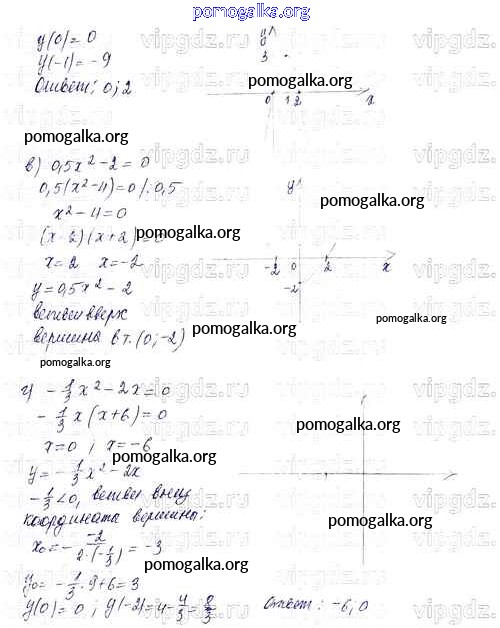 pomogalka.org
y(0) = 0
y(-1) = -9
Ответ: 0; 2
y
3
0 1 2 x
pomogalka.org
pomogalka.org
в) 0,5x² - 2 = 0
0,5(x² - 4) = 0 /: 0,5
x² - 4 = 0
(x - 2)(x + 2) = 0
x = 2 x = -2
y = 0,5x² - 2
ветви вверх
вершина в т. (0; -2)
y
-2 0 2 x
-2
pomogalka.org
pomogalka.org
pomogalka.org
pomogalka.org
г) -1/3 x² - 2x = 0
-1/3 x (x + 6) = 0
x = 0, x = -6
y = -1/3 x² - 2x
-1/3 < 0, ветви вниз
координата вершины:
x₀ = - -2/2·(-1/3) = -3
y₀ = -1/3 · 9 + 6 = 3
y(0) = 0; y(-2) = 4 - 4/3 = 8/3
Ответ: -6; 0
pomogalka.org
pomogalka.org
pomogalka.org
pomogalka.org
vipgdz.ru